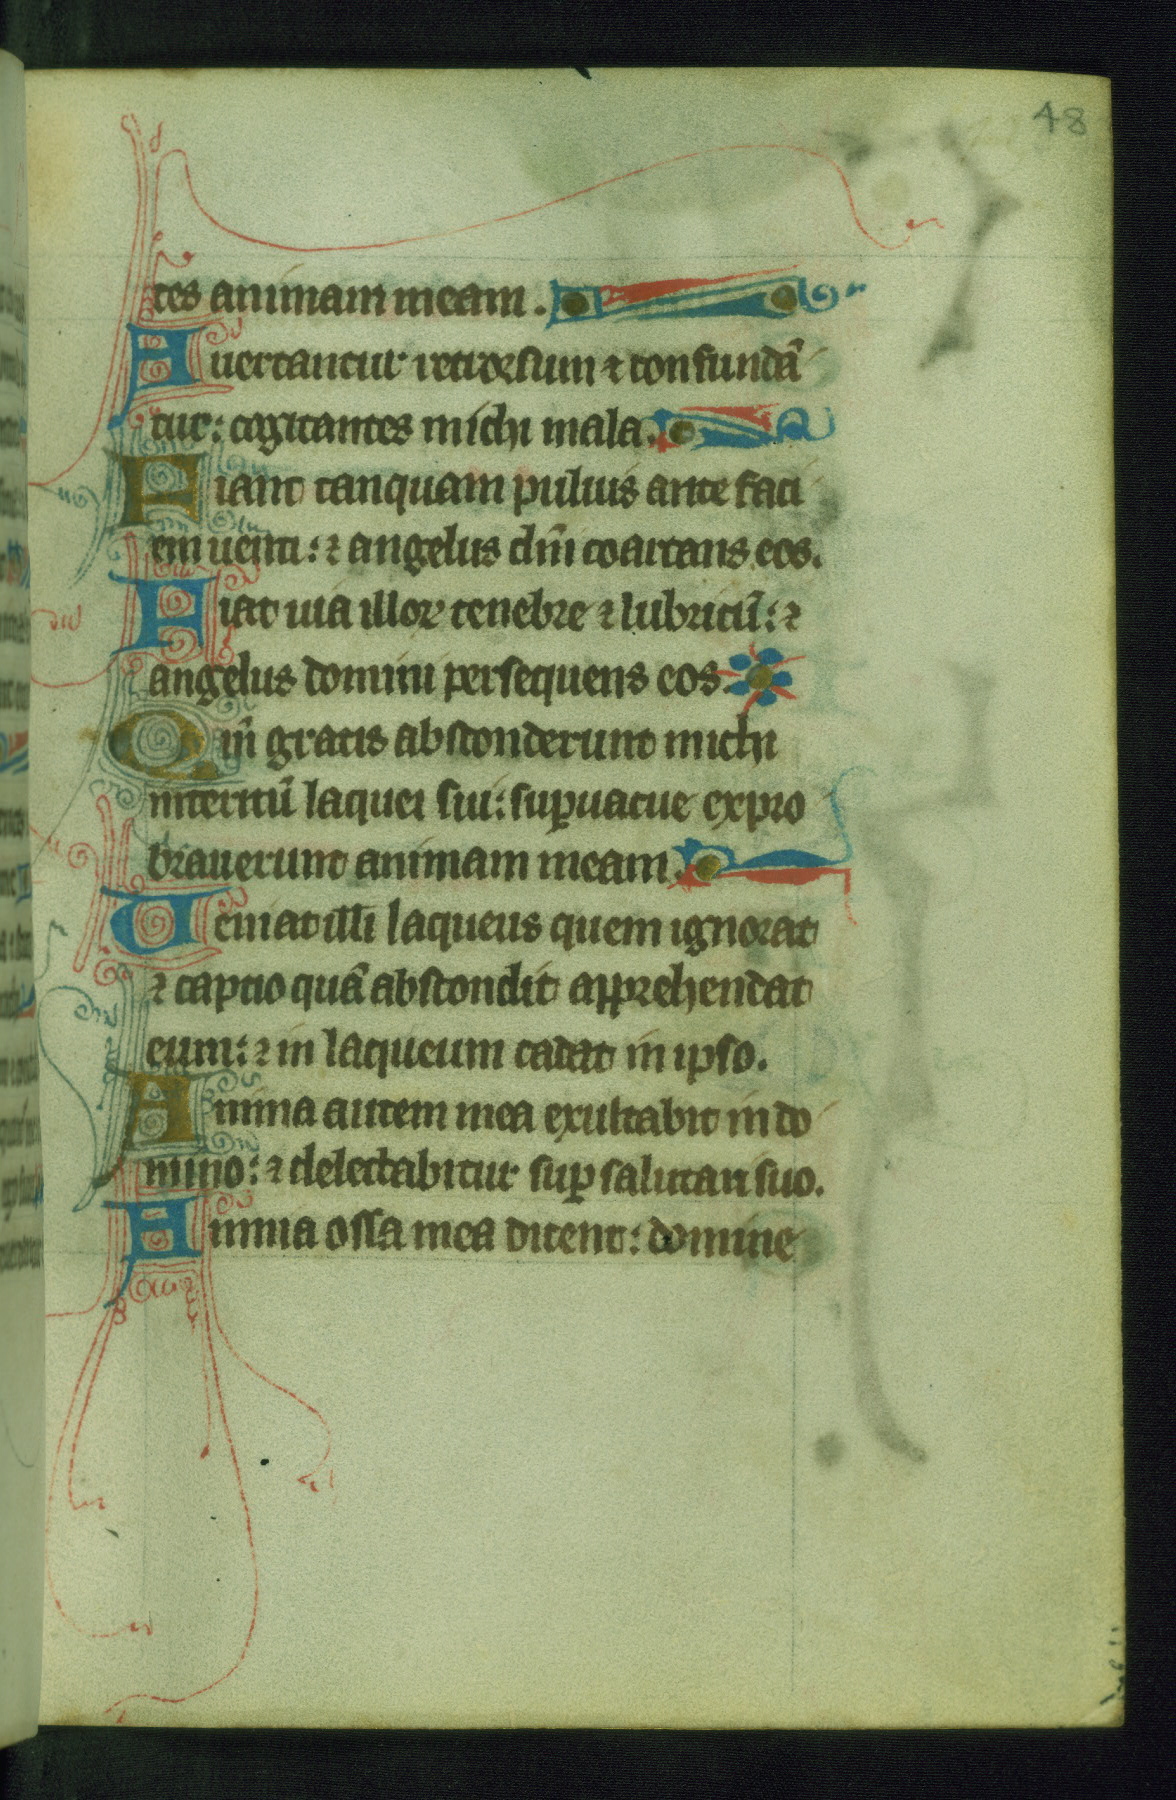 48
tes animam meam.
Auertantur retrorsum ⁊ confundā
tur: cogitantes michi mala.
Fiant tanquam puluis ante faci
em uenti: ⁊ angelus dn̄i coartans eos.
Fiat uia illoꝝ tenebre ⁊ lubricū: ⁊
angelus domini persequens eos.
Qm̄ gratis absconderunt michi
interitū laquei sui: suꝑuacue expro
brauerunt animam meam.
Ueniat illi laqueus quem ignorat
⁊ captio quā abscondit apprehendat
eum: ⁊ in laqueum cadat in ipso.
Anima autem mea exultabit in do
mino: ⁊ delectabitur suꝑ salutari suo.
Omnia ossa mea dicent: domine